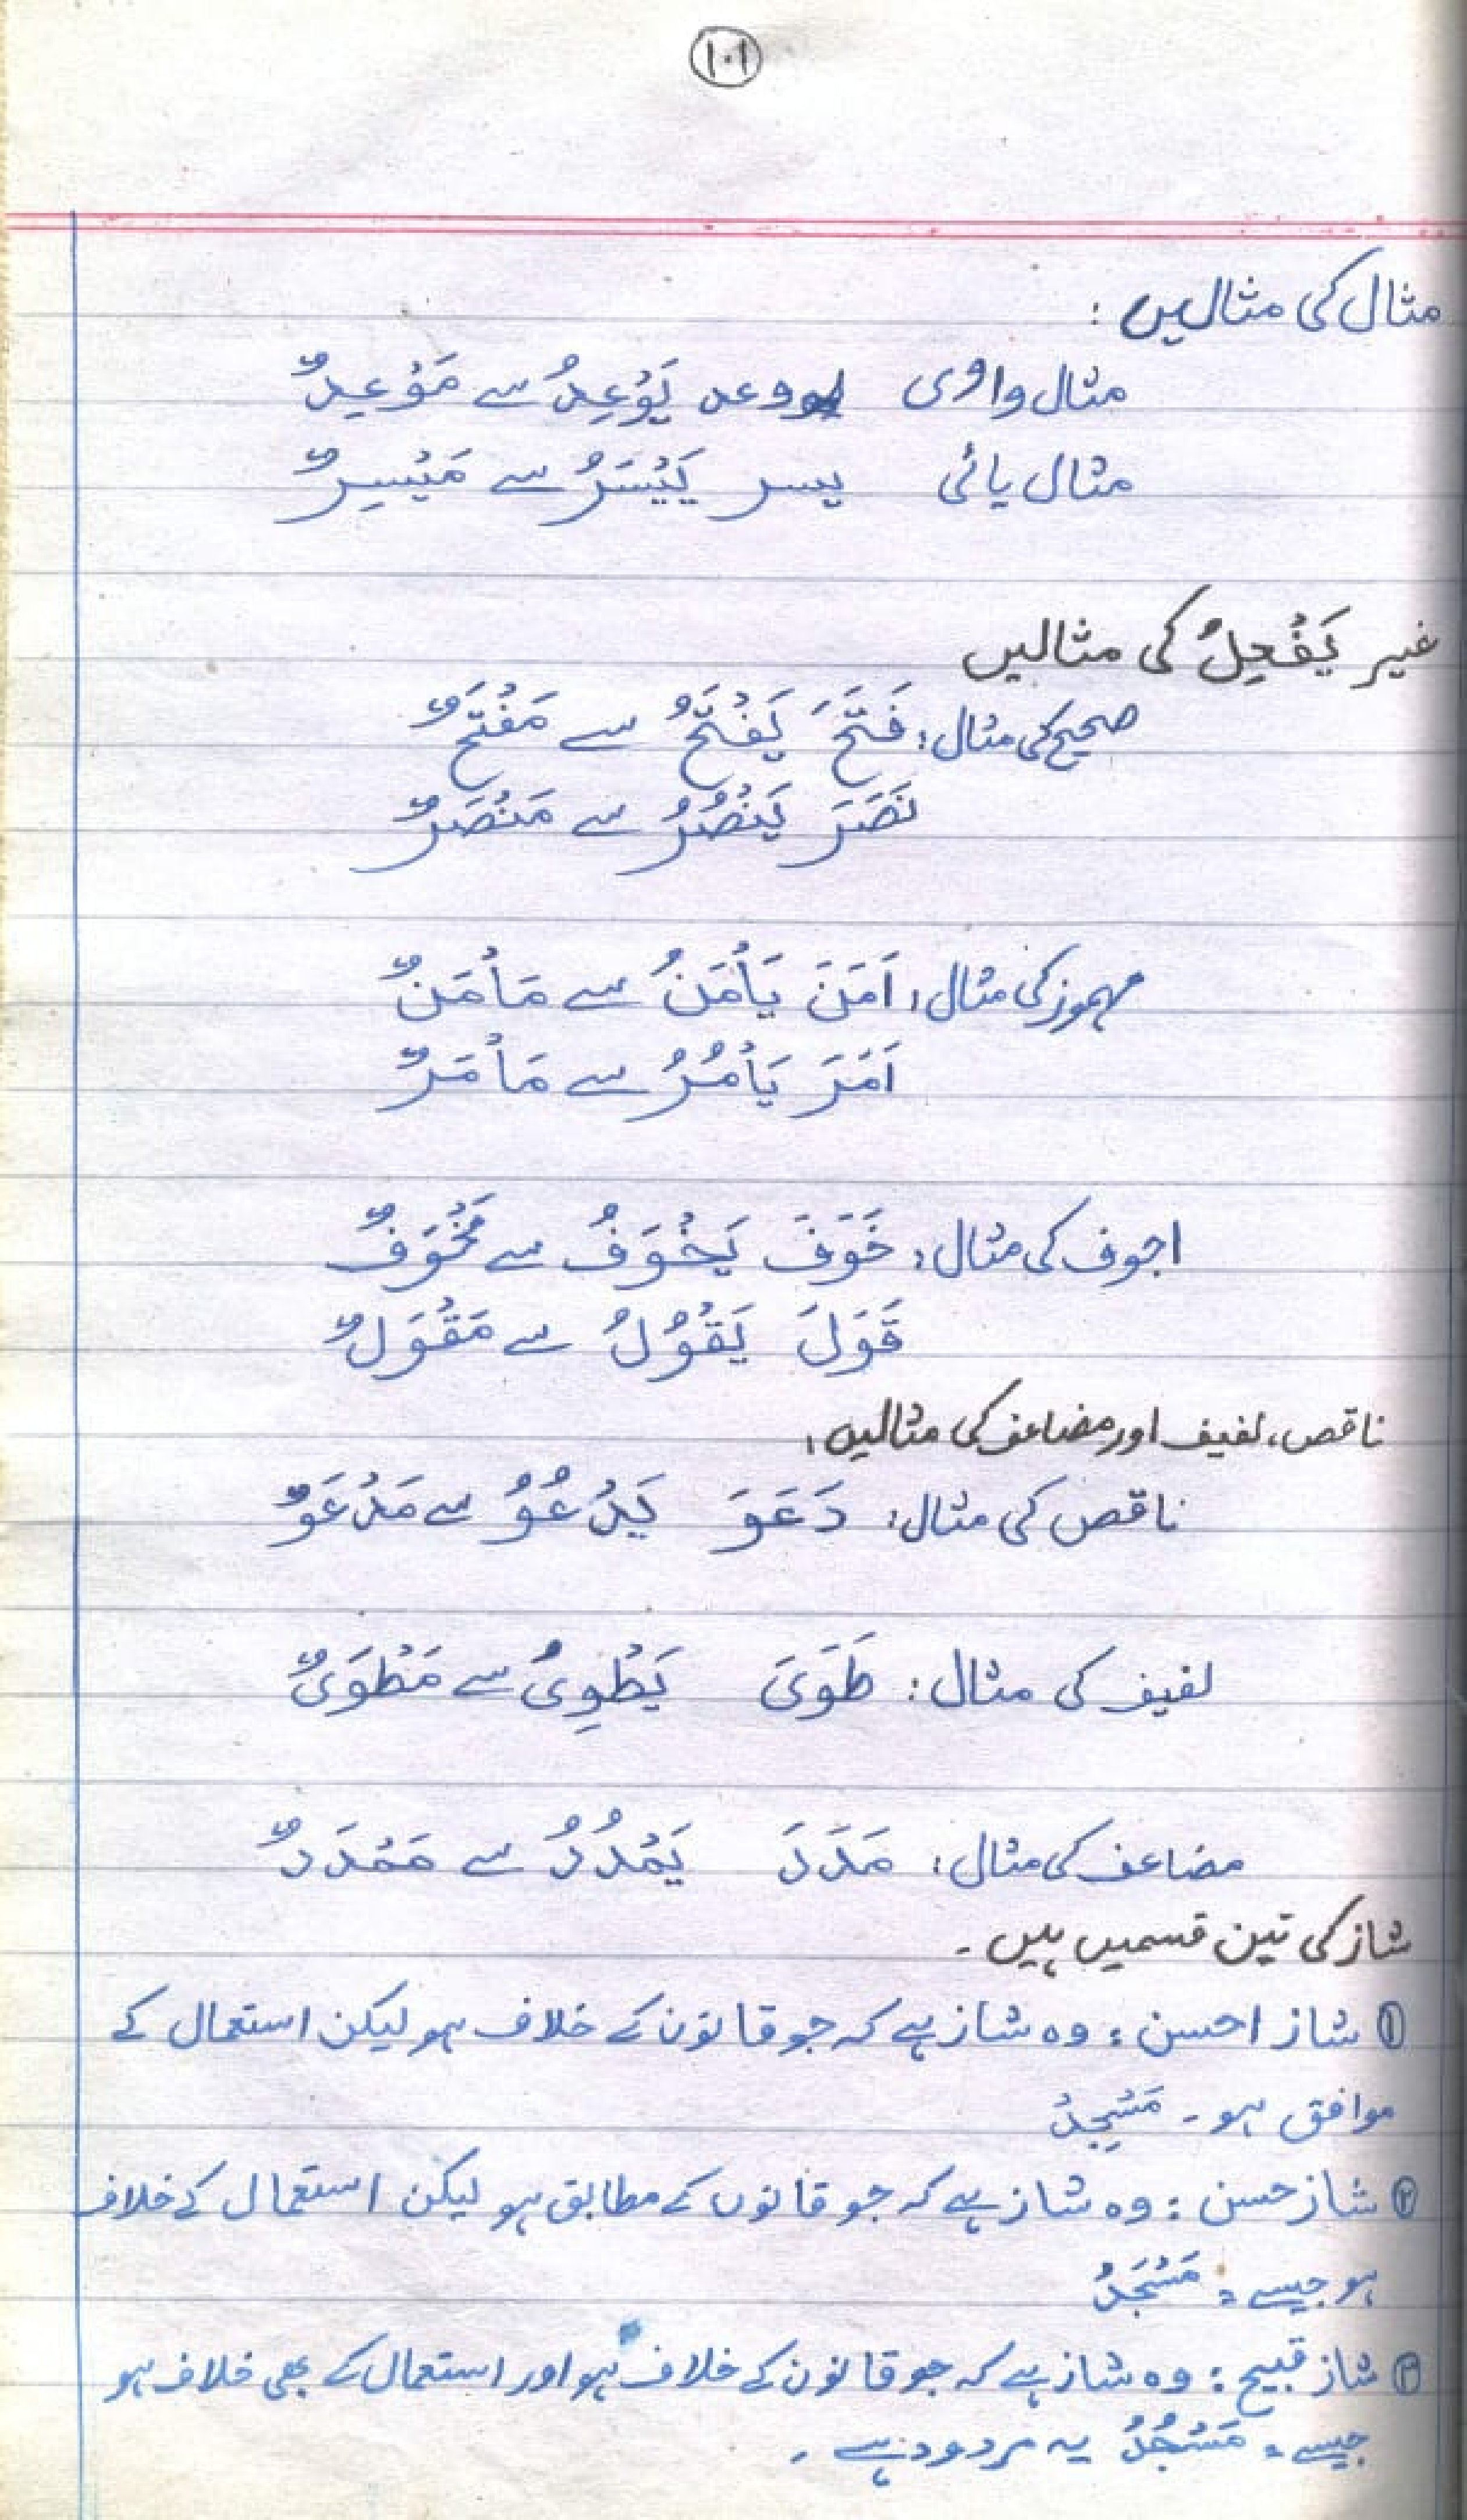 ۱۰۱
مثال کی مثالیں :
مثال واوی وعد يَوْعِدُ سے مَوْعِدٌ
مثال یائی یسر يَيْسَرُ سے مَيْسِرٌ
غیر يَفْعِلُ کی مثالیں
صحیح کی مثال: فَتَحَ يَفْتَحُ سے مَفْتَحٌ
نَصَرَ يَنْصُرُ سے مَنْصَرٌ
مہموز کی مثال: اَمَنَ يَأْمَنُ سے مَأْمَنٌ
اَمَرَ يَأْمُرُ سے مَأْمَرٌ
اجوف کی مثال: خَوَفَ يَخْوَفُ سے مَخْوَفٌ
قَوَلَ يَقْوُلُ سے مَقْوَلٌ
ناقص، لفیف اور مضاعف کی مثالیں:
ناقص کی مثال: دَعَوَ يَدْعُوُ سے مَدْعَوٌ
لفیف کی مثال: طَوَىَ يَطْوِىُ سے مَطْوَىٌ
مضاعف کی مثال: مَدَدَ يَمْدُدُ سے مَمْدَدٌ
شاز کی تین قسمیں ہیں۔
① شاز احسن : وہ شاز ہے کہ جو قانون کے خلاف ہو لیکن استعمال کے
موافق ہو۔ مَسْجِدُ
② شاز حسن : وہ شاز ہے کہ جو قانوں کے مطابق ہو لیکن استعمال کے خلاف
ہو جیسے: مَسْجَدُ
③ شاز قبیح : وہ شاز ہے کہ جو قانون کے خلاف ہو اور استعمال کے بھی خلاف ہو
جیسے: مَسْجُدُ یہ مردود ہے۔